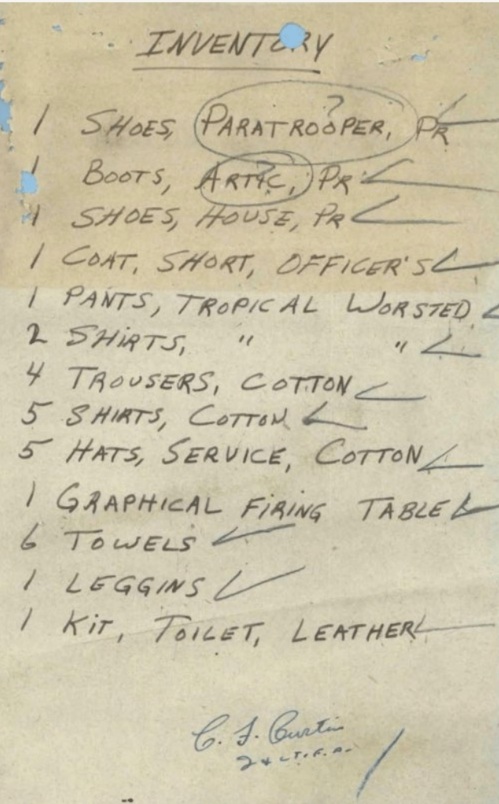 INVENTORY
?
1 SHOES, PARATROOPER, PR
?
1 BOOTS, ARTIC, PR
1 SHOES, HOUSE, PR
1 COAT, SHORT, OFFICER'S
1 PANTS, TROPICAL WORSTED
2 SHIRTS, " "
4 TROUSERS, COTTON
5 SHIRTS, COTTON
5 HATS, SERVICE, COTTON
1 GRAPHICAL FIRING TABLE
6 TOWELS
1 LEGGINS
1 KIT, TOILET, LEATHER
C. F. Curtin
2d LT. F.A.